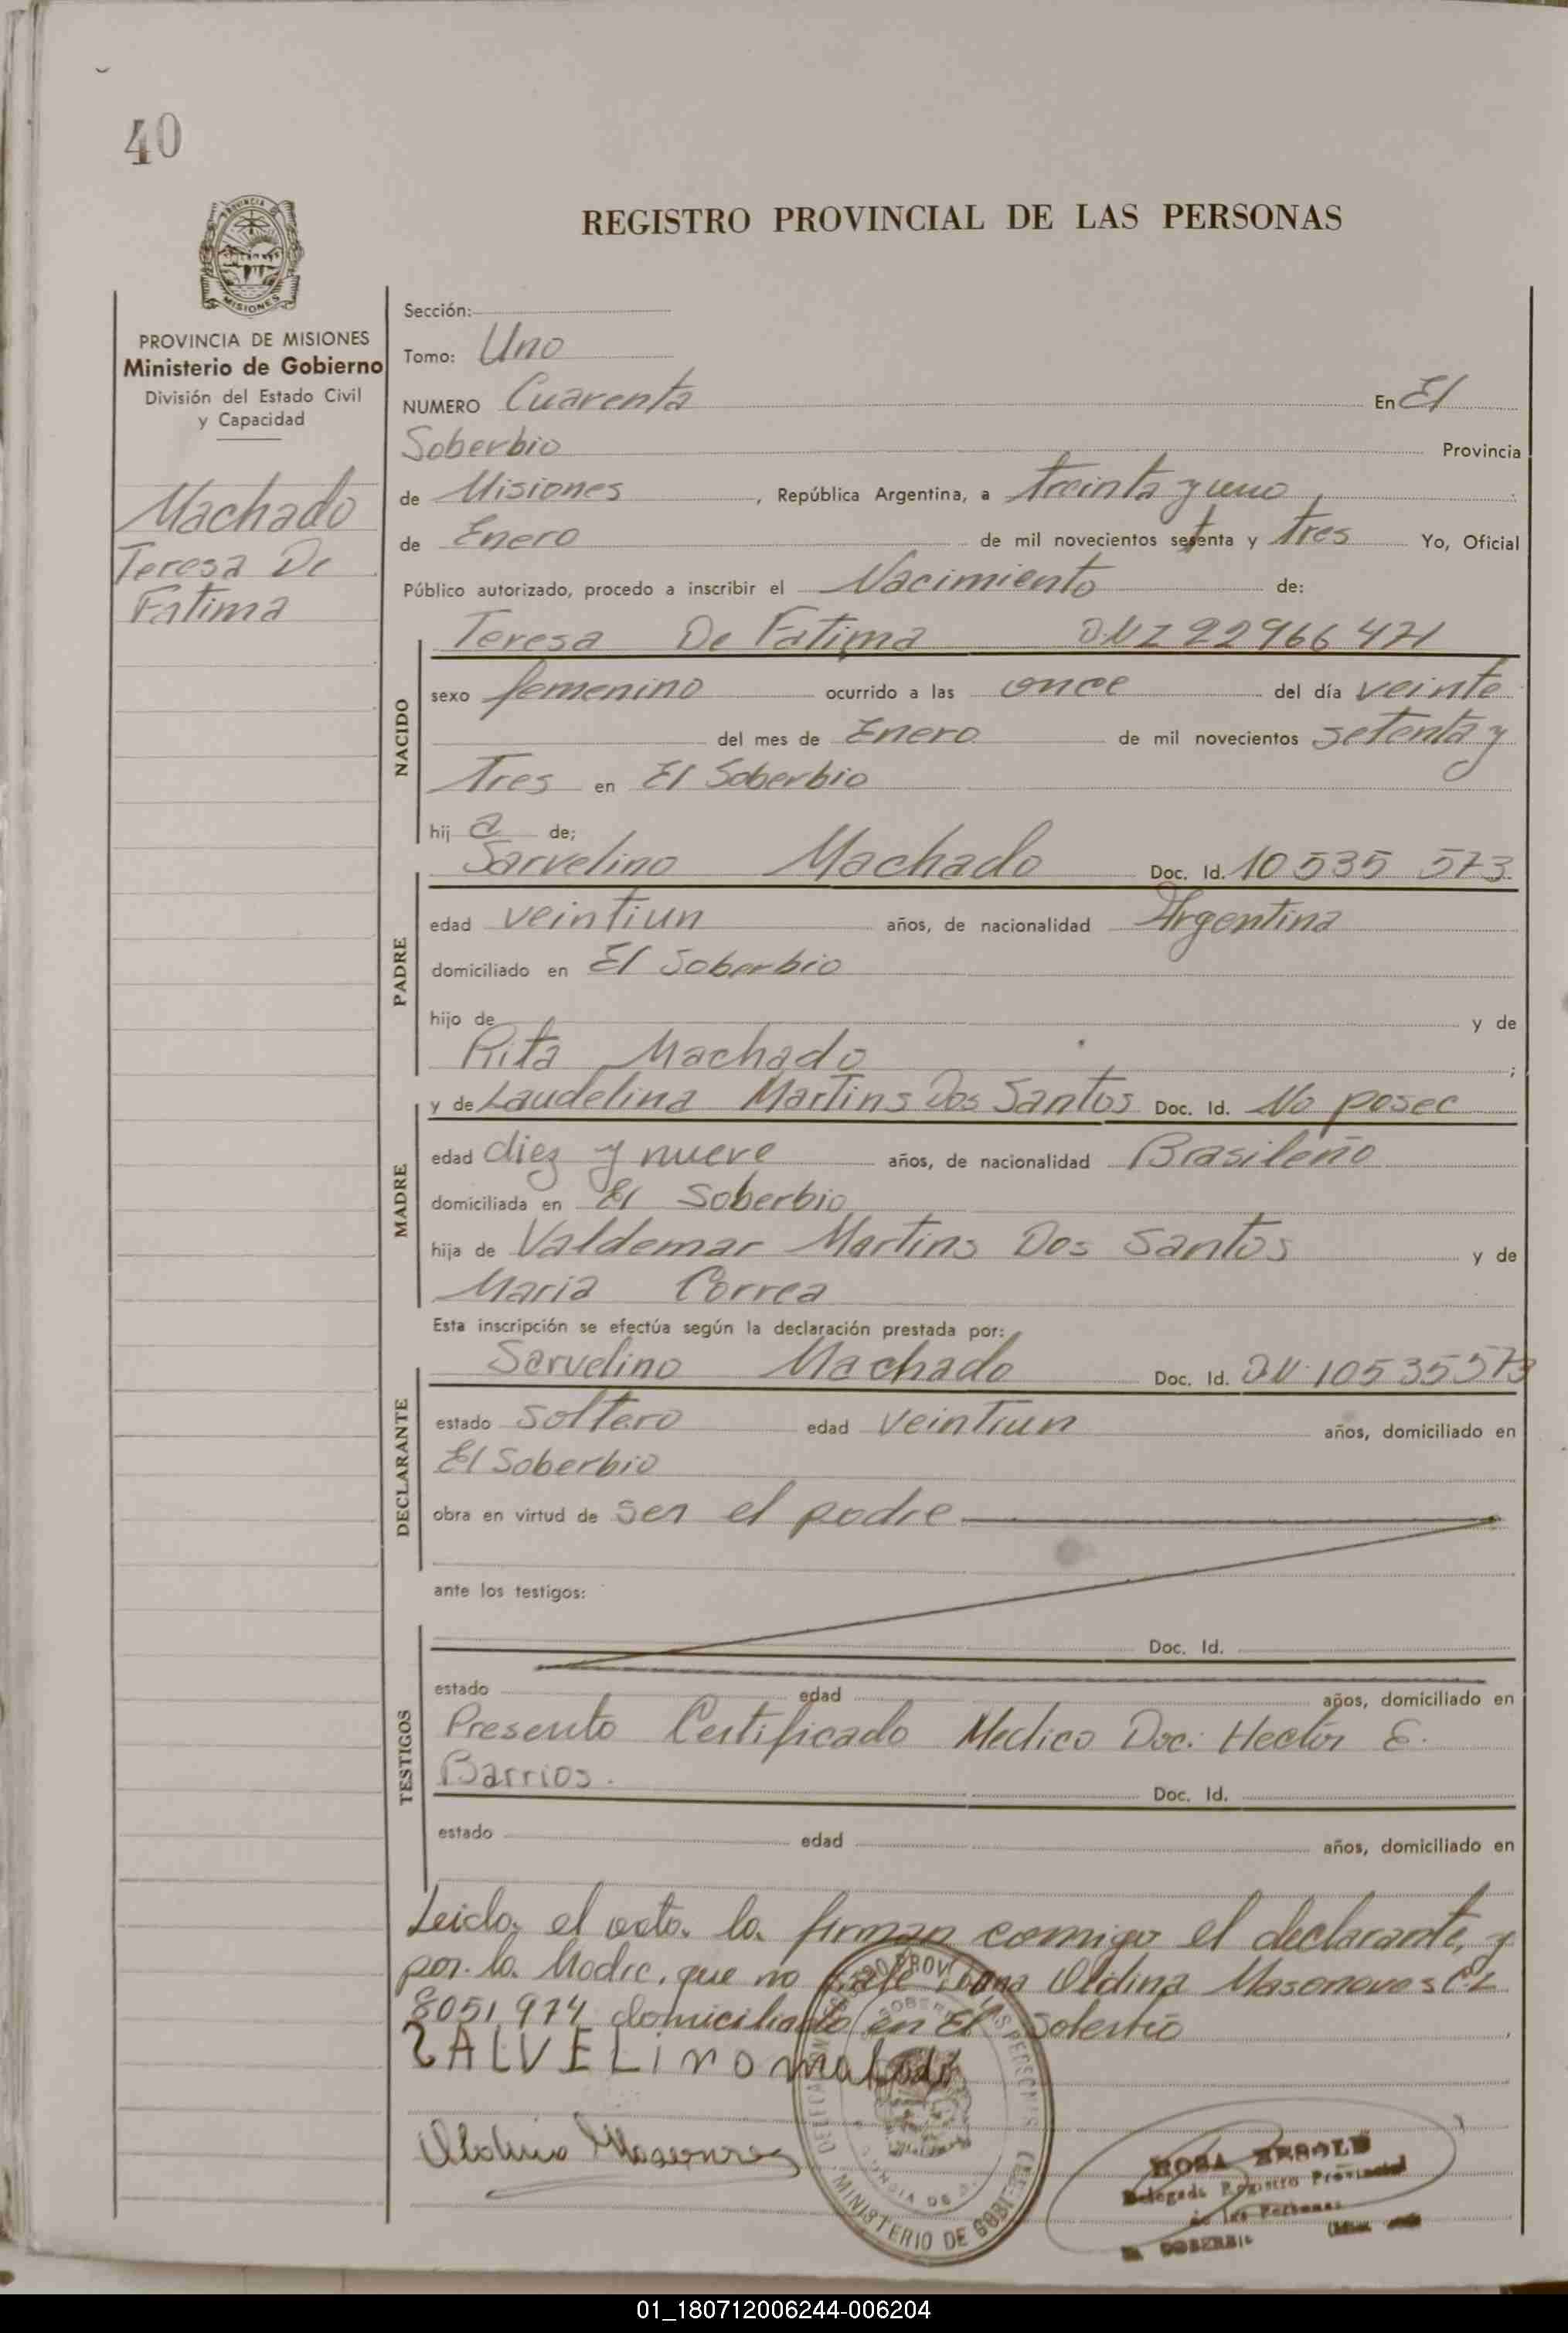 40
REGISTRO PROVINCIAL DE LAS PERSONAS
MISIONES
PROVINCIA DE MISIONES
Ministerio de Gobierno
División del Estado Civil
y Capacidad
Machado
Teresa De
Fatima
Sección:
Tomo: Uno
NUMERO Cuarenta En El
Soberbio Provincia
de Misiones, República Argentina, a treinta y uno
de Enero de mil novecientos setenta y tres Yo, Oficial
Público autorizado, procedo a inscribir el Nacimiento de:
NACIDO
Teresa De Fatima DNI 22966471
sexo femenino ocurrido a las once del día veinte
del mes de Enero de mil novecientos setenta y
Tres en El Soberbio
hij a de;
PADRE
Sarvelino Machado Doc. Id. 10 535 573
edad veintiun años, de nacionalidad Argentina
domiciliado en El Soberbio
hijo de y de
Rita Machado ;
MADRE
y de Laudelina Martins Dos Santos Doc. Id. No posee
edad diez y nueve años, de nacionalidad Brasileño
domiciliada en El Soberbio
hija de Valdemar Martins Dos Santos y de
Maria Correa
Esta inscripción se efectúa según la declaración prestada por:
DECLARANTE
Servelino Machado Doc. Id. DN 10535573
estado Soltero edad veintiun años, domiciliado en
El Soberbio
obra en virtud de ser el padre
ante los testigos:
TESTIGOS
Doc. Id.
estado edad años, domiciliado en
Presento Certificado Medico Doc: Hector E.
Barrios. Doc. Id.
estado edad años, domiciliado en
Leida, el acta. la firman comigo el declarante, y
por la Madre, que no Oldina Masonaves C.I.
8051974 domiciliada en El Soberbio
SALVELino
MINISTERIO DE GOBIERNO
ROSA
Delegada Registro Provincial
de las Personas
EL SOBERBIO
01_180712006244-006204